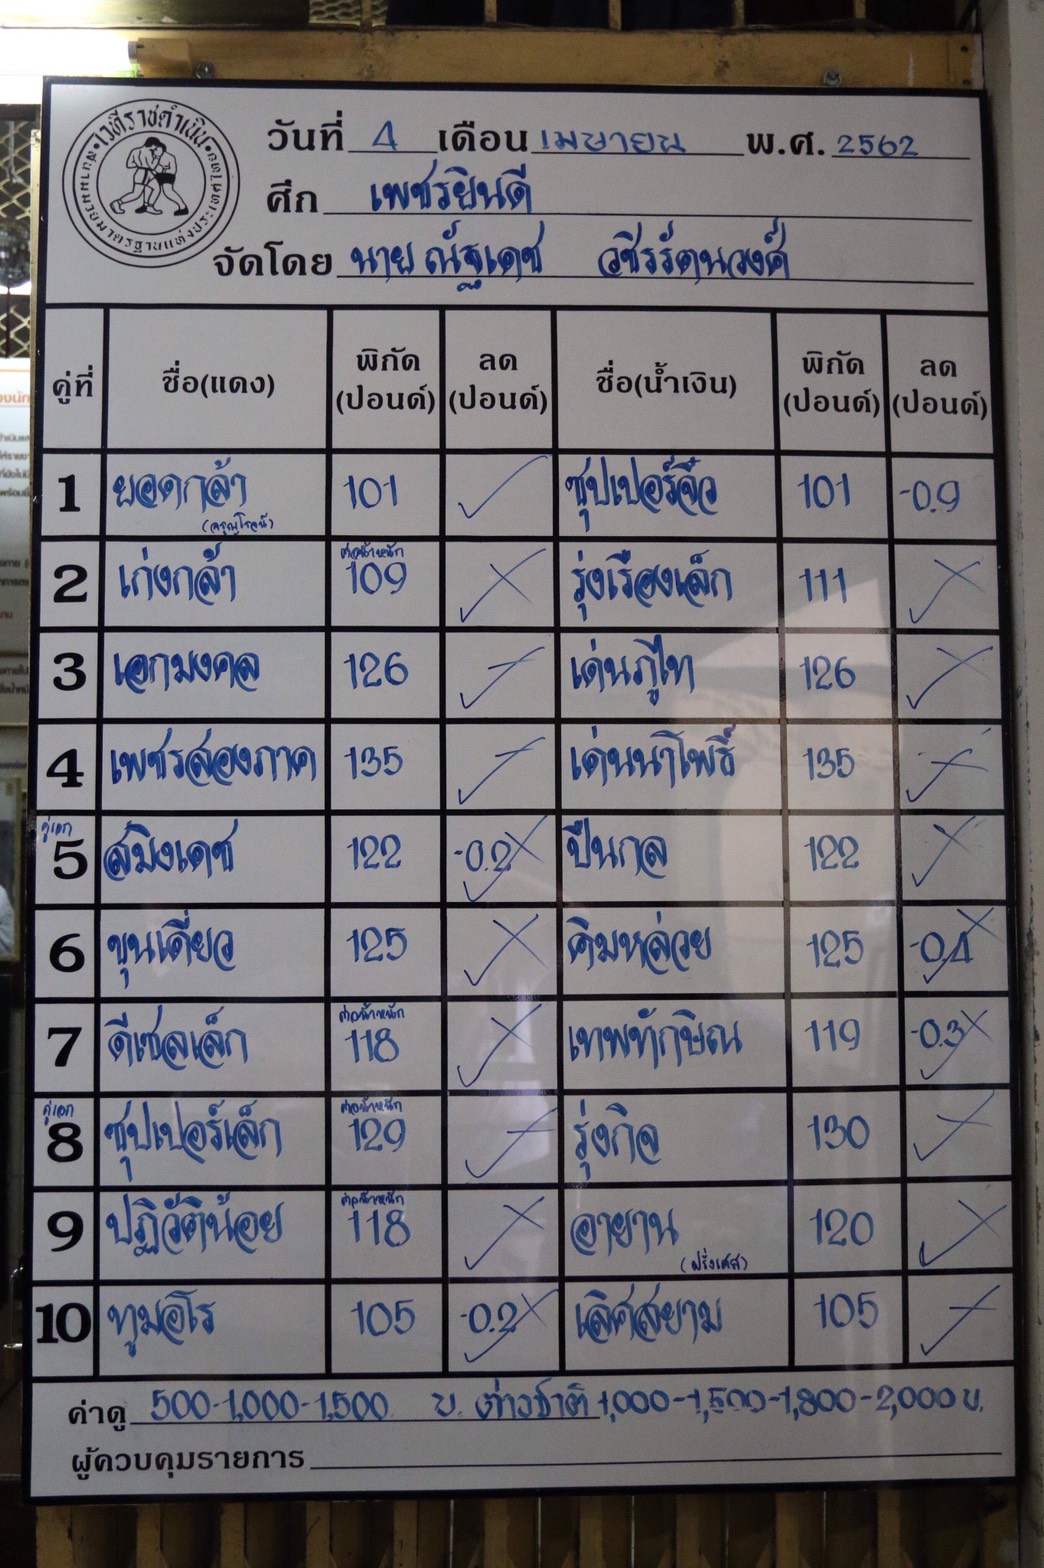 เวทีราชดำเนิน
วันที่ 4 เดือน เมษายน พ.ศ. 2562
ศึก เพชรยินดี
จัดโดย นาย ณัฐเดช วชิรรัตนวงศ์
คู่ที่ ชื่อ(แดง) พิกัด (ปอนด์) ลด (ปอนด์) ชื่อ(น้ำเงิน) พิกัด (ปอนด์) ลด (ปอนด์)
1 ยอดกล้า 101 ซุปเปอร์จิ๋ว 101 -0.9
2 เก่งกล้า ต่อน้ำหนัก 109 รุ่งเรืองเล็ก 111
3 เอกมงคล 126 เด่นภูไท 126
4 เพชรสองภาค 135 เด่นนำโพธิ์ 135
คู่เอก 5 สมิงเดช 122 -0.2 ปืนกล 122
6 ขุนเดี่ยว 125 คิมหล่วย 125 -0.4
7 ดีเซลเล็ก ต่อน้ำหนัก 118 เทพทักษิณ 119 -0.3
คู่เอก 8 ซุปเปอร์เล็ก ต่อน้ำหนัก 129 รุ่งกิจ 130
9 ปฏิวัติน้อย ต่อน้ำหนัก 118 อายาน (ฝรั่งเศส) 120
10 ทูมอโร 105 -0.2 เลิศสยาม 105
ค่าดู 500-1,000-1,500 บ. ต่างชาติ 1,000-1,500-1,800-2,000 บ.
ผู้ควบคุมรายการ